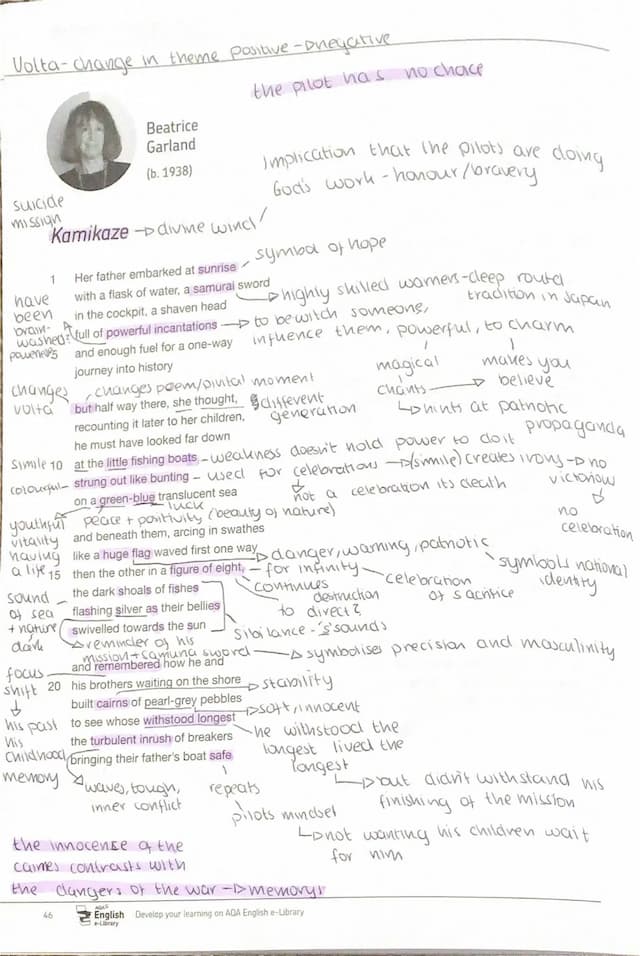 Volta - change in theme positive → negative
the pilot has no choice
Beatrice
Garland
(b. 1938)
Implication that the pilots are doing
God's work - honour/bravery
suicide
mission
Kamikaze → divine wind
symbol of hope
1 Her father embarked at sunrise
with a flask of water, a samurai sword
→ highly skilled warriors - deep routed
tradition in Japan
in the cockpit, a shaven head
have
been
brain-
washed?
powerless
full of powerful incantations → to bewitch someone,
influence them, powerful, to charm
5 and enough fuel for a one-way
journey into history
magical
chants →
makes you
believe
↳ hints at patriotic
propaganda
changes
volta
changes poem/pivital moment
but half way there, she thought,
different
generation
recounting it later to her children,
he must have looked far down
simile 10 at the little fishing boats - weakness doesn't hold power to do it
colourful - strung out like bunting - used for celebrations → (simile) creates irony → no
victoriow
↓
no
celebration
not a celebration its death
on a green-blue translucent sea
luck
youthful
vitality
having
a life
peace + positivity (beauty of nature)
and beneath them, arcing in swathes
like a huge flag waved first one way → danger, warning, patriotic
symbols national
identity
15 then the other in a figure of eight, - for infinity
celebration
of sacrifice
continues
destruction
to direct?
sound
of sea
+ nature
dark
the dark shoals of fishes
flashing silver as their bellies
swivelled towards the sun
sibilance - 's' sounds
reminder of his
mission + samurai sword → symbolises precision and masculinity
focus
shift
↓
his past
his
childhood
memory
and remembered how he and
20 his brothers waiting on the shore → stability
built cairns of pearl-grey pebbles
→ soft, innocent
to see whose withstood longest
he withstood the
longest lived the
longest
↳ but didn't withstand his
finishing of the mission
the turbulent inrush of breakers
bringing their father's boat safe
waves, tough,
inner conflict
repeats
pilots mindset
↳ not wanting his children wait
for him
the innocense of the
cairnes contrasts with
the dangers of the war → memorys
46
AQA
English
e-Library
Develop your learning on AQA English e-Library